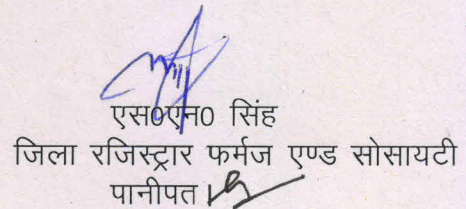 एस0एन0 सिंह
जिला रजिस्ट्रार फर्मज एण्ड सोसायटी
पानीपत